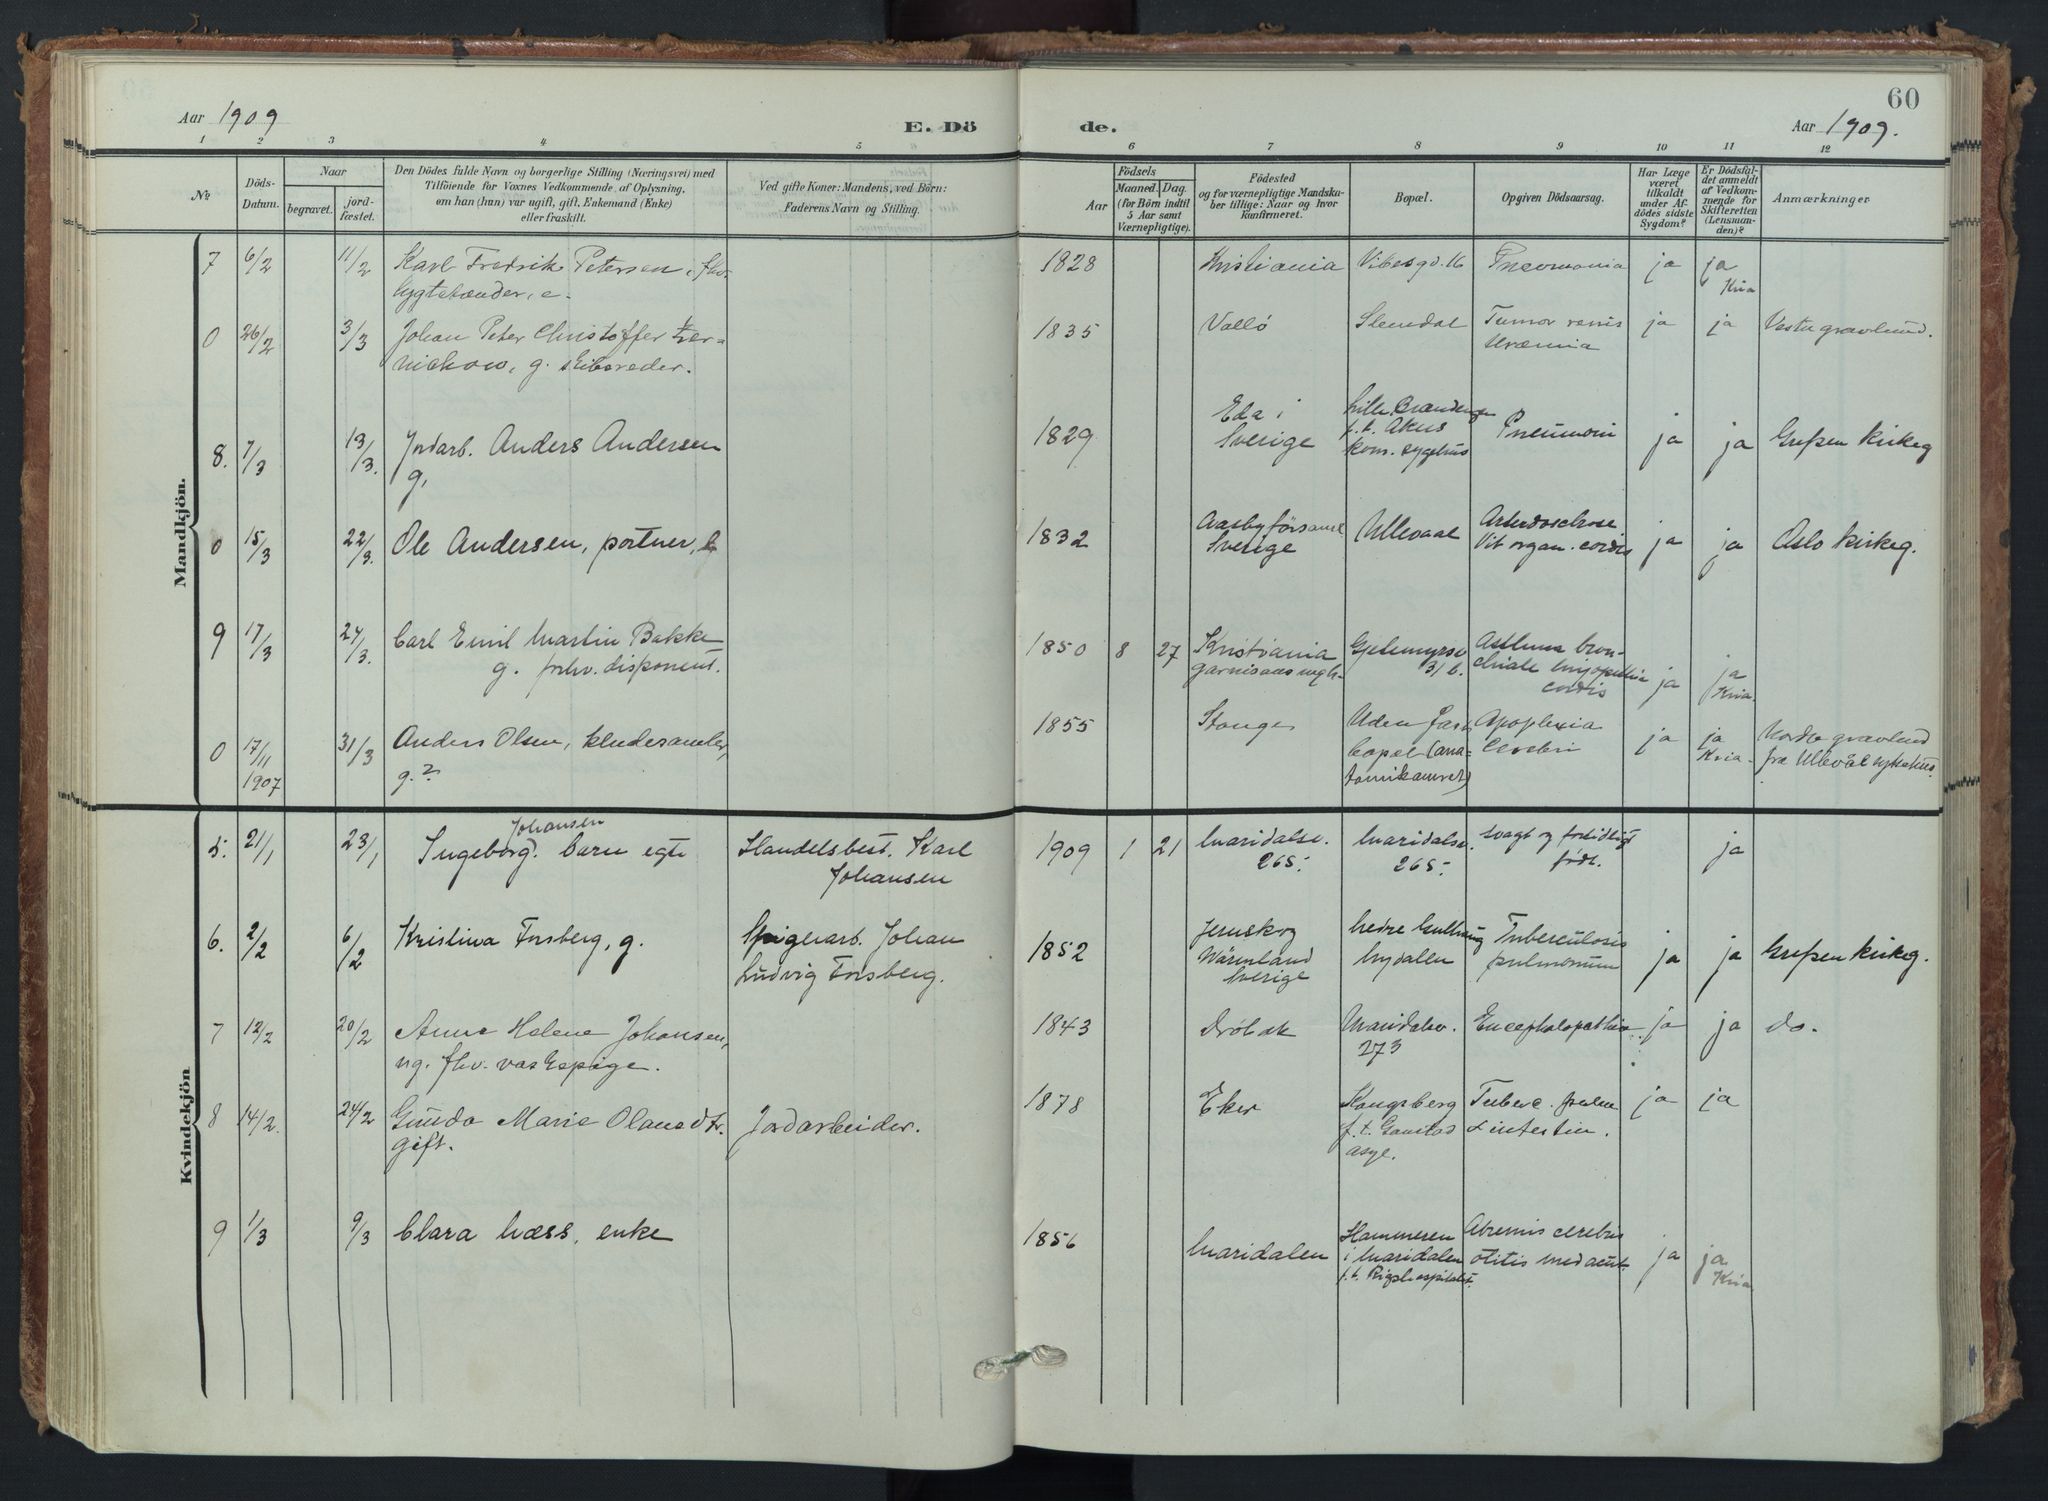 60
Aar 1909
E. Dö
de.
Aar 1909.
1 2 3 4 5 6 7 8 9 10 11 12
No
Döds-
Datum.
Naar
begravet.
jord-
fæstet.
Den Dödes fulde Navn og borgerlige Stilling (Næringsvei) med
Tilföiende for Voxnes Vedkommende af Oplysning,
om han (hun) var ugift, gift, Enkemand (Enke)
eller fraskilt.
Ved gifte Koner: Mandens, ved Börn:
Faderens Navn og Stilling.
Födsels
Aar
Maaned. Dag.
(for Börn indtil
5 Aar samt
Værnepligtige).
Födested
og for værnepligtige Mandska-
ber tillige: Naar og hvor
Konfirmeret.
Bopæl.
Opgiven Dödsaarsag.
Har Læge
været
tilkaldt
under Af-
dödes sidste
Sygdom?
Er Dödsfal-
det anmeldt
af Vedkom-
mende for
Skifteretten
(Lensman-
den)?
Anmærkninger
Mandkjön.
7 6/2 11/2 Karl Fredrik Petersen, fhv. 1828 Kristiania Vibesgd. 16 Pneomonia ja ja
lygtetænder, e. Kria
0 26/2 3/3 Johan Peter Christoffer 1835 Vallö Slemdal Tumor renis ja ja Vestre gravlund.
g. skibsreder. Uræmia
8. 7/3 13/3. Jordarb. Anders Andersen 1829 Eda i Lille
Sverige f.t. Akus Pneumoni ja ja Grefsen kirkeg
g, kom. sygehus
0 15/3 22/3. Ole Andersen, portner, 1832 Sverige Ullevaal ja ja Oslo kirkeg.
Vit. organ. cordis
9 17/3 24/3. Carl Emil Martin Bakke 1850 8 27 Kristiania Asthma bron-
g. forhv. disponent. 31 b. chiale myopathia ja ja
cordis Kria
0 17/11 31/3 Anders Olsen, kludesamler, 1855 Stange Uden fast Apoplexia ja ja Nordre gravlund
1907 g.? bopæl (ana- Cerebri Kria. fra Ullevål sykehus.
tomikamret)
Kvindekjön
5. 21/1 23/1 Johansen
Ingeborg. barn egte Handelsbest. Karl 1909 1 21 Maridalsv. Maridalsv. svagt og fortidligt ja
Johansen 265. 265. född.
6. 2/2 6/2 Kristina Forsberg, g. Spigerarb. Johan 1852 Jernskog Nedre Tuberculosis ja ja Grefsen kirkeg.
Ludvig Forsberg. Wärmland Nydalen pulmonum
Sverige
7 12/2 20/2 Anne Helene Johansen, 1843 Dröbak Maridalsv. Encephalopathia ja ja do.
ug. fhv. vaskepige. 273
8 14/2. 24/2 Gunda Marie Olausdtr. Jordarbeider. 1878 Eker Kongsberg Tuberc. pulm ja ja
gift. f.t. Gaustad & intestin.
asyl.
9 1/3 9/3 Clara Næss, enke 1856 Maridalen Hammeren cerebri ja ja
i Maridalen otitis med acut. Kria
f.t. Rigshospitalet.